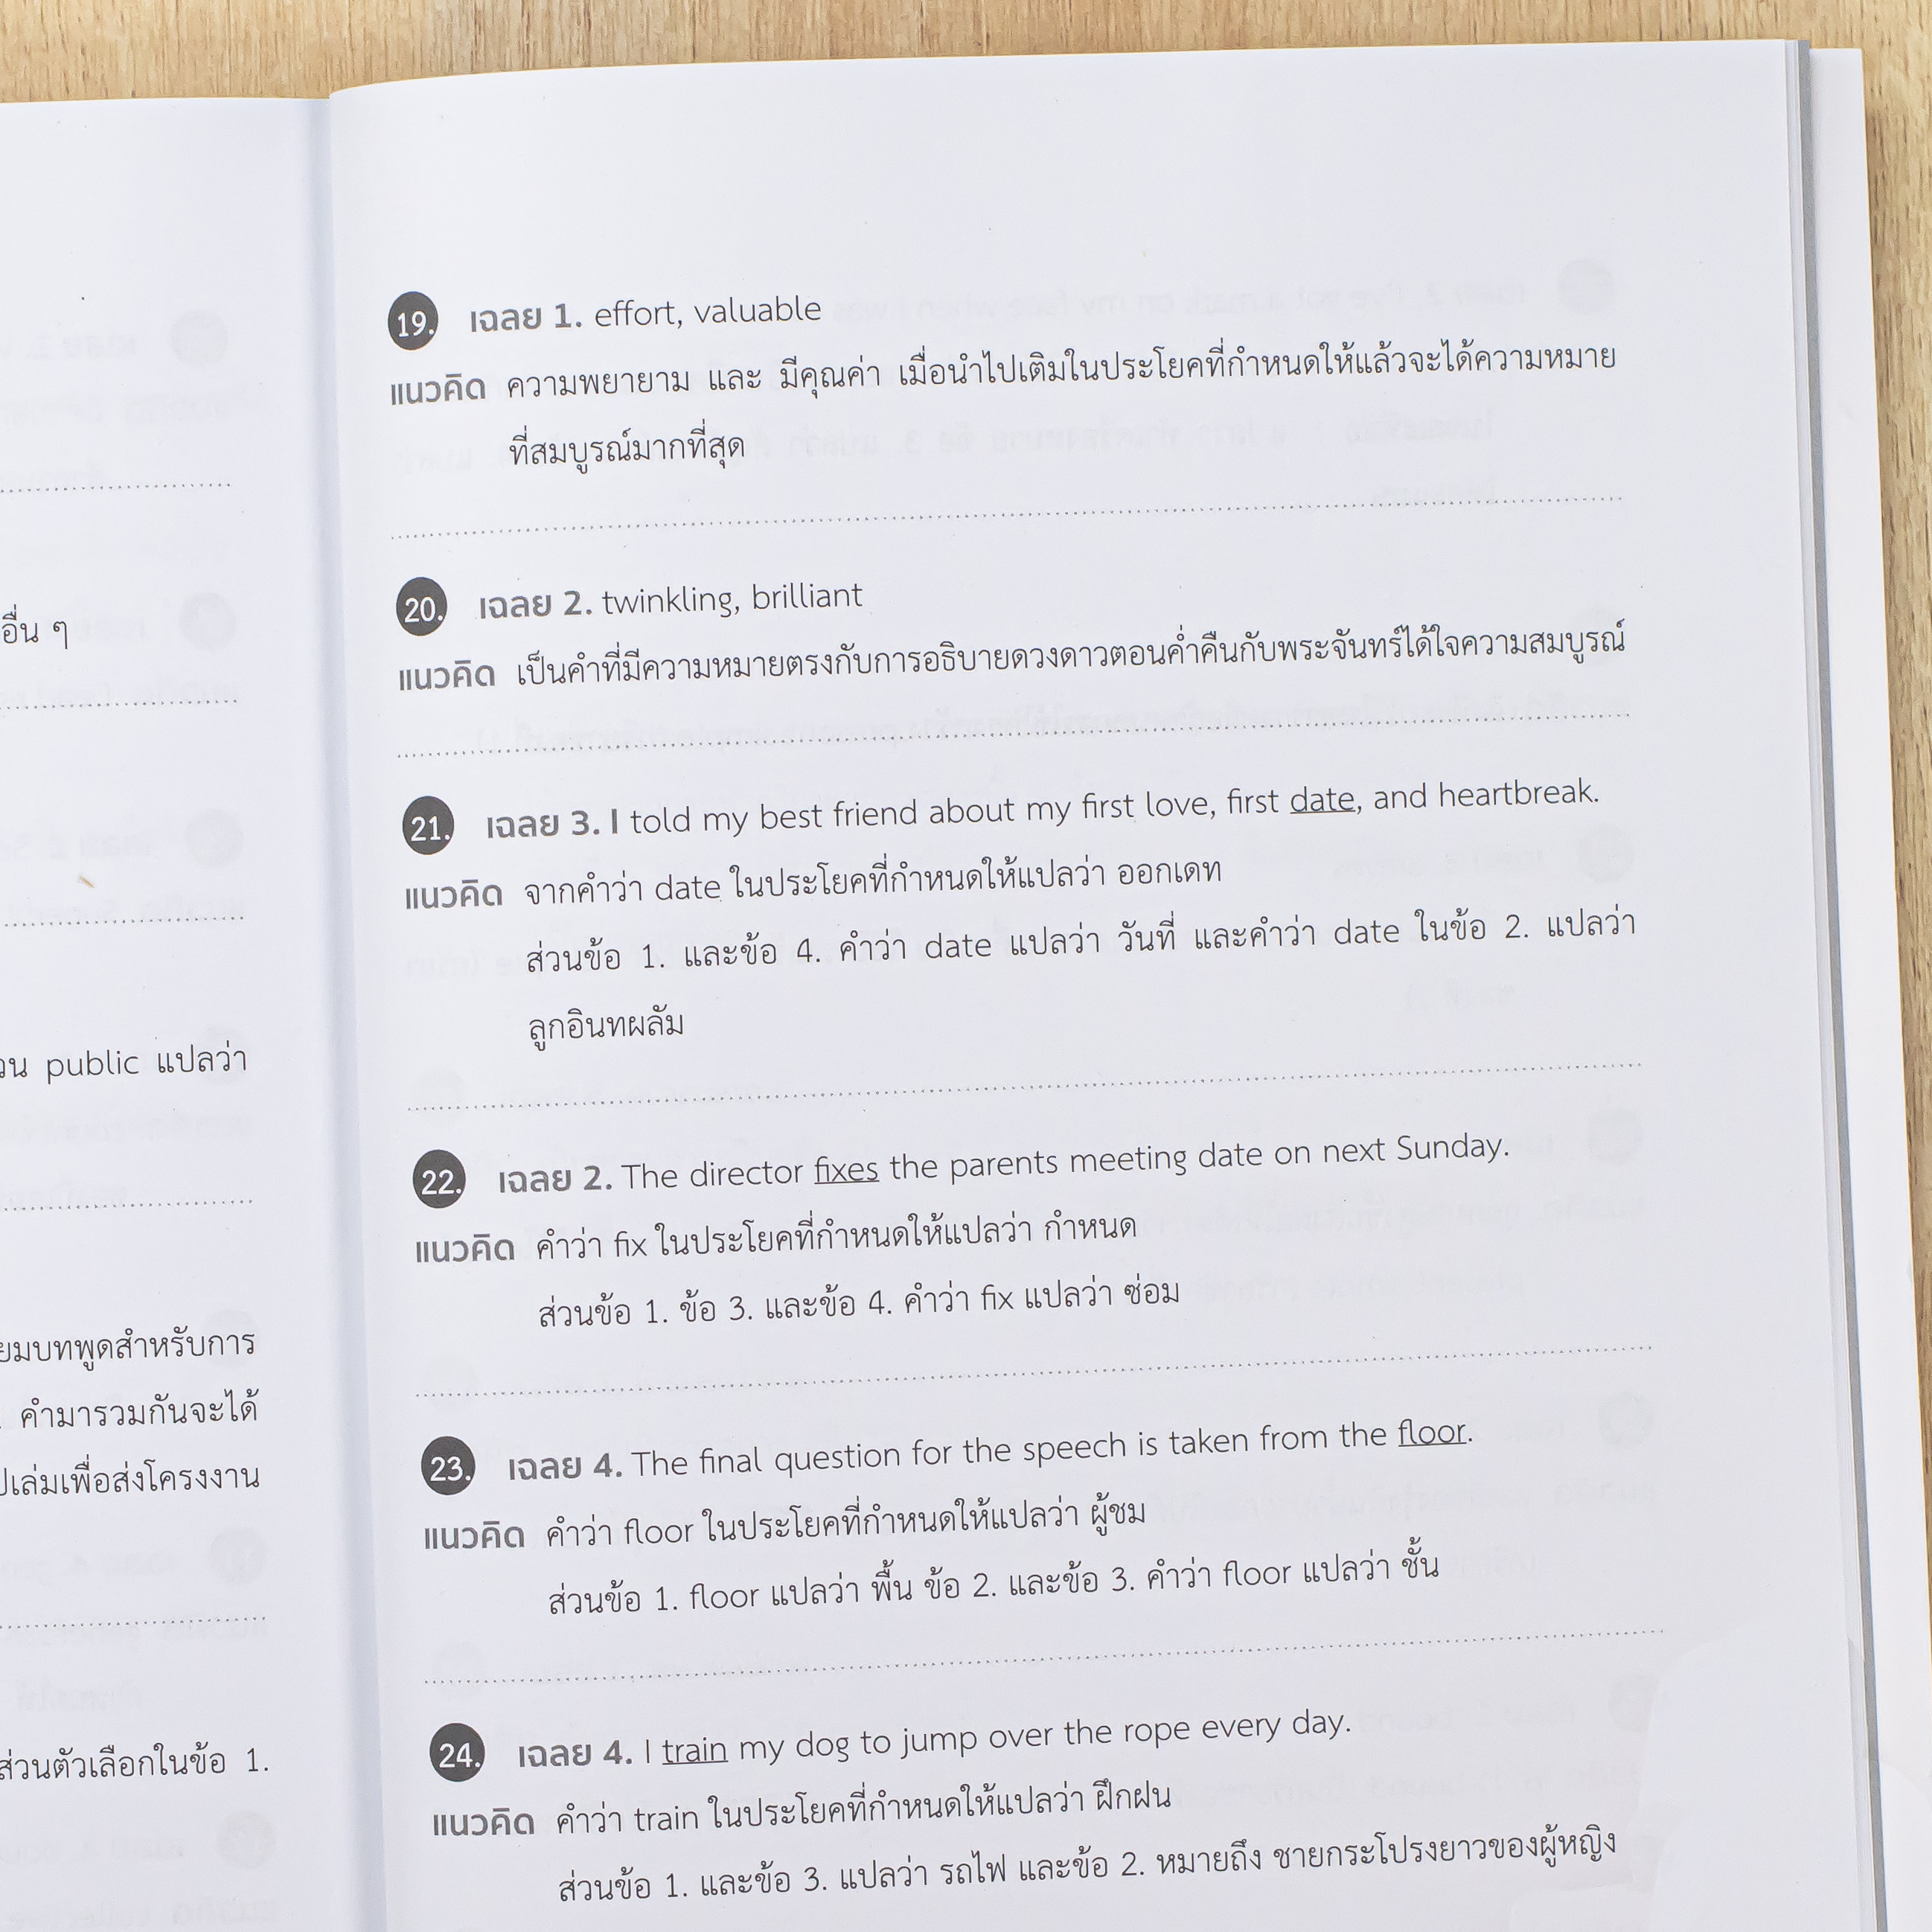 อื่น ๆ
public แปลว่า
บทพูดสำหรับการ
คำมารวมกันจะได้
เล่มเพื่อส่งโครงงาน
ส่วนตัวเลือกในข้อ 1.
19. เฉลย 1. effort, valuable
แนวคิด ความพยายาม และ มีคุณค่า เมื่อนำไปเติมในประโยคที่กำหนดให้แล้วจะได้ความหมาย
ที่สมบูรณ์มากที่สุด
20. เฉลย 2. twinkling, brilliant
แนวคิด เป็นคำที่มีความหมายตรงกับการอธิบายดวงดาวตอนค่ำคืนกับพระจันทร์ได้ใจความสมบูรณ์
21. เฉลย 3. I told my best friend about my first love, first date, and heartbreak.
แนวคิด จากคำว่า date ในประโยคที่กำหนดให้แปลว่า ออกเดท
ส่วนข้อ 1. และข้อ 4. คำว่า date แปลว่า วันที่ และคำว่า date ในข้อ 2. แปลว่า
ลูกอินทผลัม
22. เฉลย 2. The director fixes the parents meeting date on next Sunday.
แนวคิด คำว่า fix ในประโยคที่กำหนดให้แปลว่า กำหนด
ส่วนข้อ 1. ข้อ 3. และข้อ 4. คำว่า fix แปลว่า ซ่อม
23. เฉลย 4. The final question for the speech is taken from the floor.
แนวคิด คำว่า floor ในประโยคที่กำหนดให้แปลว่า ผู้ชม
ส่วนข้อ 1. floor แปลว่า พื้น ข้อ 2. และข้อ 3. คำว่า floor แปลว่า ชั้น
24. เฉลย 4. I train my dog to jump over the rope every day.
แนวคิด คำว่า train ในประโยคที่กำหนดให้แปลว่า ฝึกฝน
ส่วนข้อ 1. และข้อ 3. แปลว่า รถไฟ และข้อ 2. หมายถึง ชายกระโปรงยาวของผู้หญิง